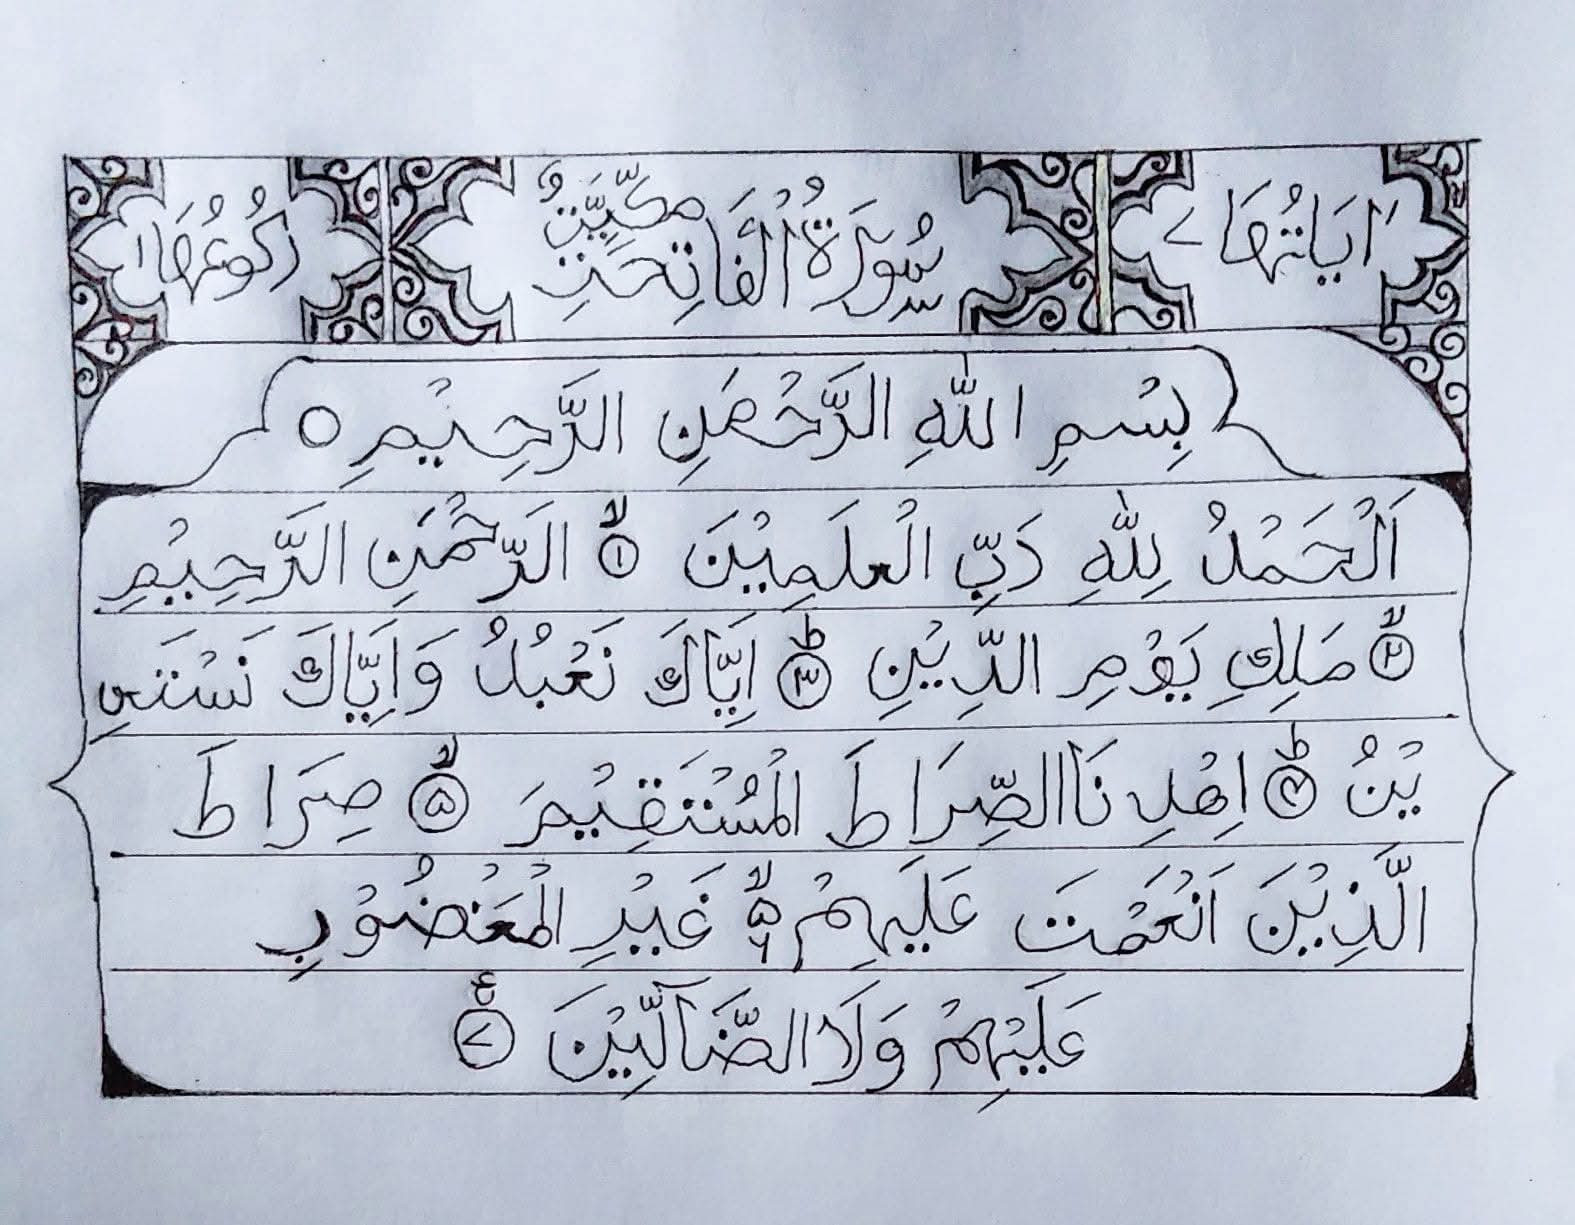 اٰيَاتُهَا ٧
سُوْرَةُ الْفَاتِحَةِ مَكِّيَّةٌ
رُكُوْعُهَا ١
بِسْمِ اللّٰهِ الرَّحْمٰنِ الرَّحِيْمِ ○
اَلْحَمْدُ لِلّٰهِ رَبِّ الْعٰلَمِيْنَ ۙ﴿١﴾ الرَّحْمٰنِ الرَّحِيْمِ
ۙ﴿٢﴾ مٰلِكِ يَوْمِ الدِّيْنِ ؕ﴿٣﴾ اِيَّاكَ نَعْبُدُ وَاِيَّاكَ نَسْتَعِ
يْنُ ؕ﴿۴﴾ اِهْدِ نَا الصِّرَاطَ الْمُسْتَقِيْمَ ۙ﴿۵﴾ صِرَاطَ
الَّذِيْنَ اَنْعَمْتَ عَلَيْهِمْ ۙ۵ ٦ غَيْرِ الْمَغْضُوْبِ
عَلَيْهِمْ وَلَا الضَّآلِّيْنَ ﴿٧﴾ ع